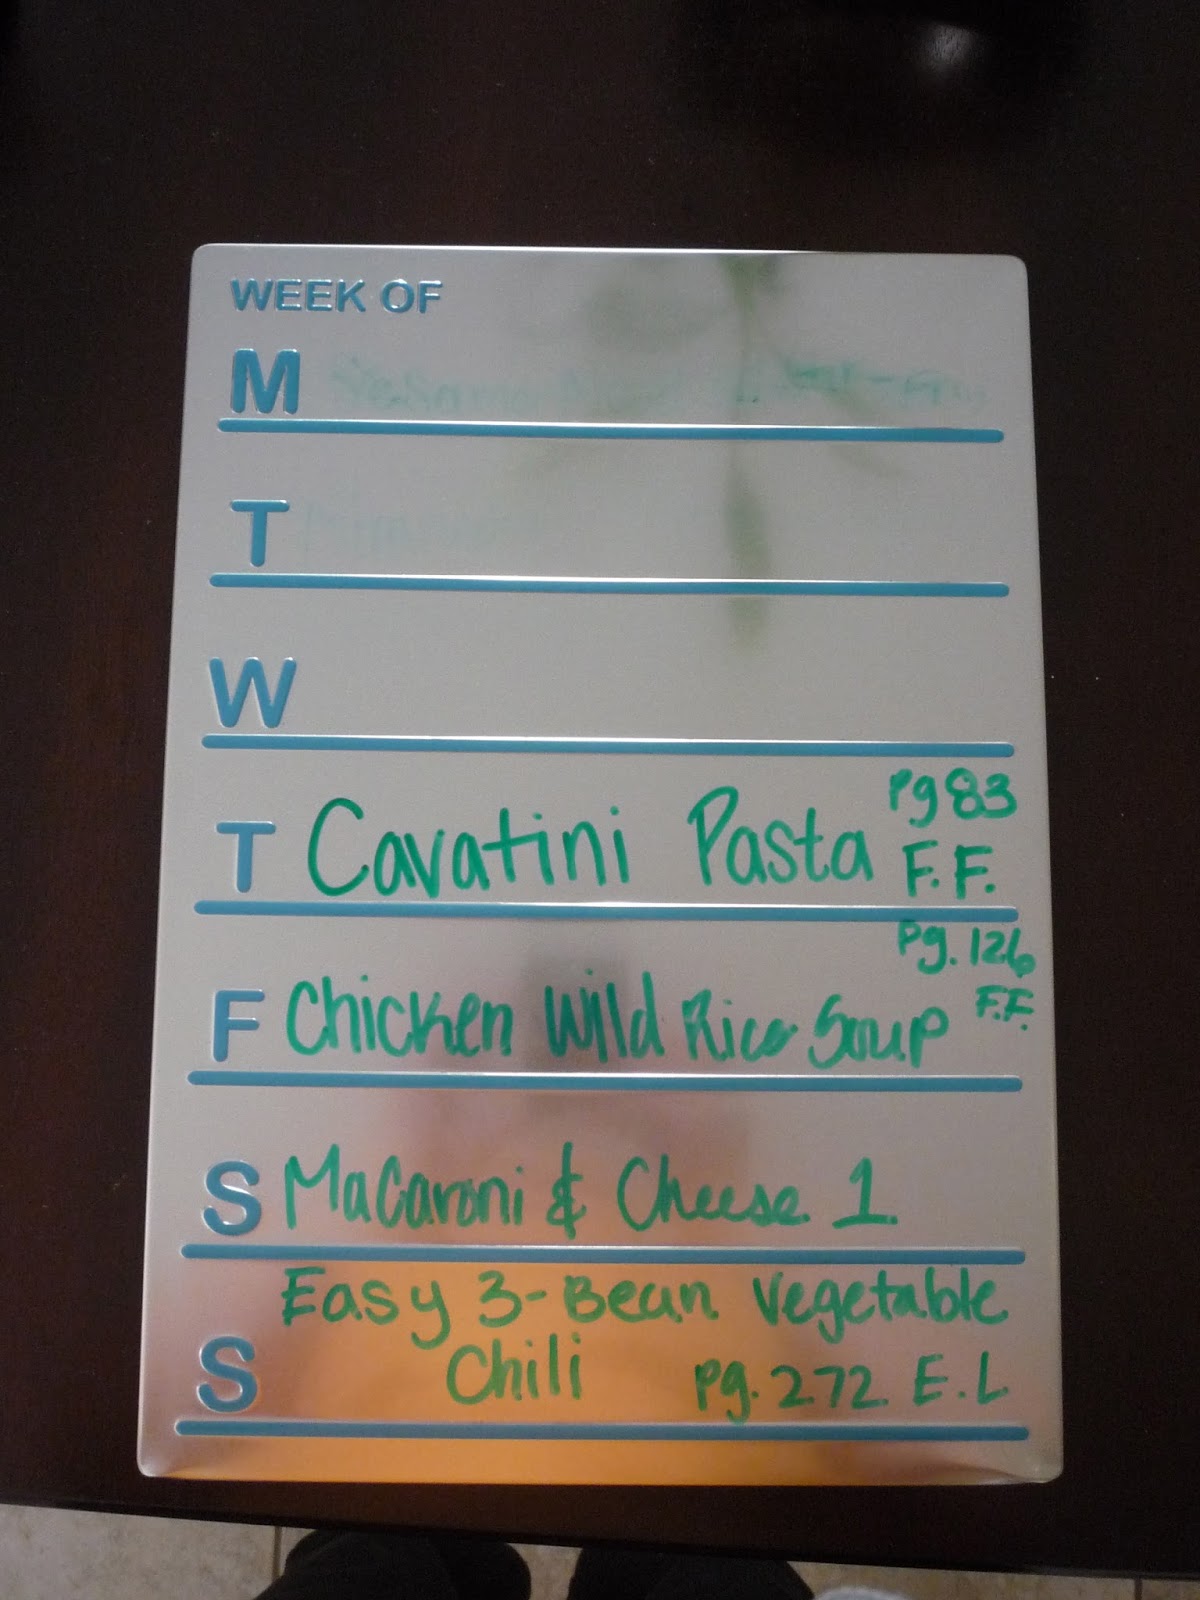 WEEK OF
M
T
W
T Cavatini Pasta pg 83
F.F.
F Chicken Wild Rice Soup pg. 126
F.F.
S Macaroni & Cheese 1
S Easy 3-Bean Vegetable
Chili pg. 272 E.L